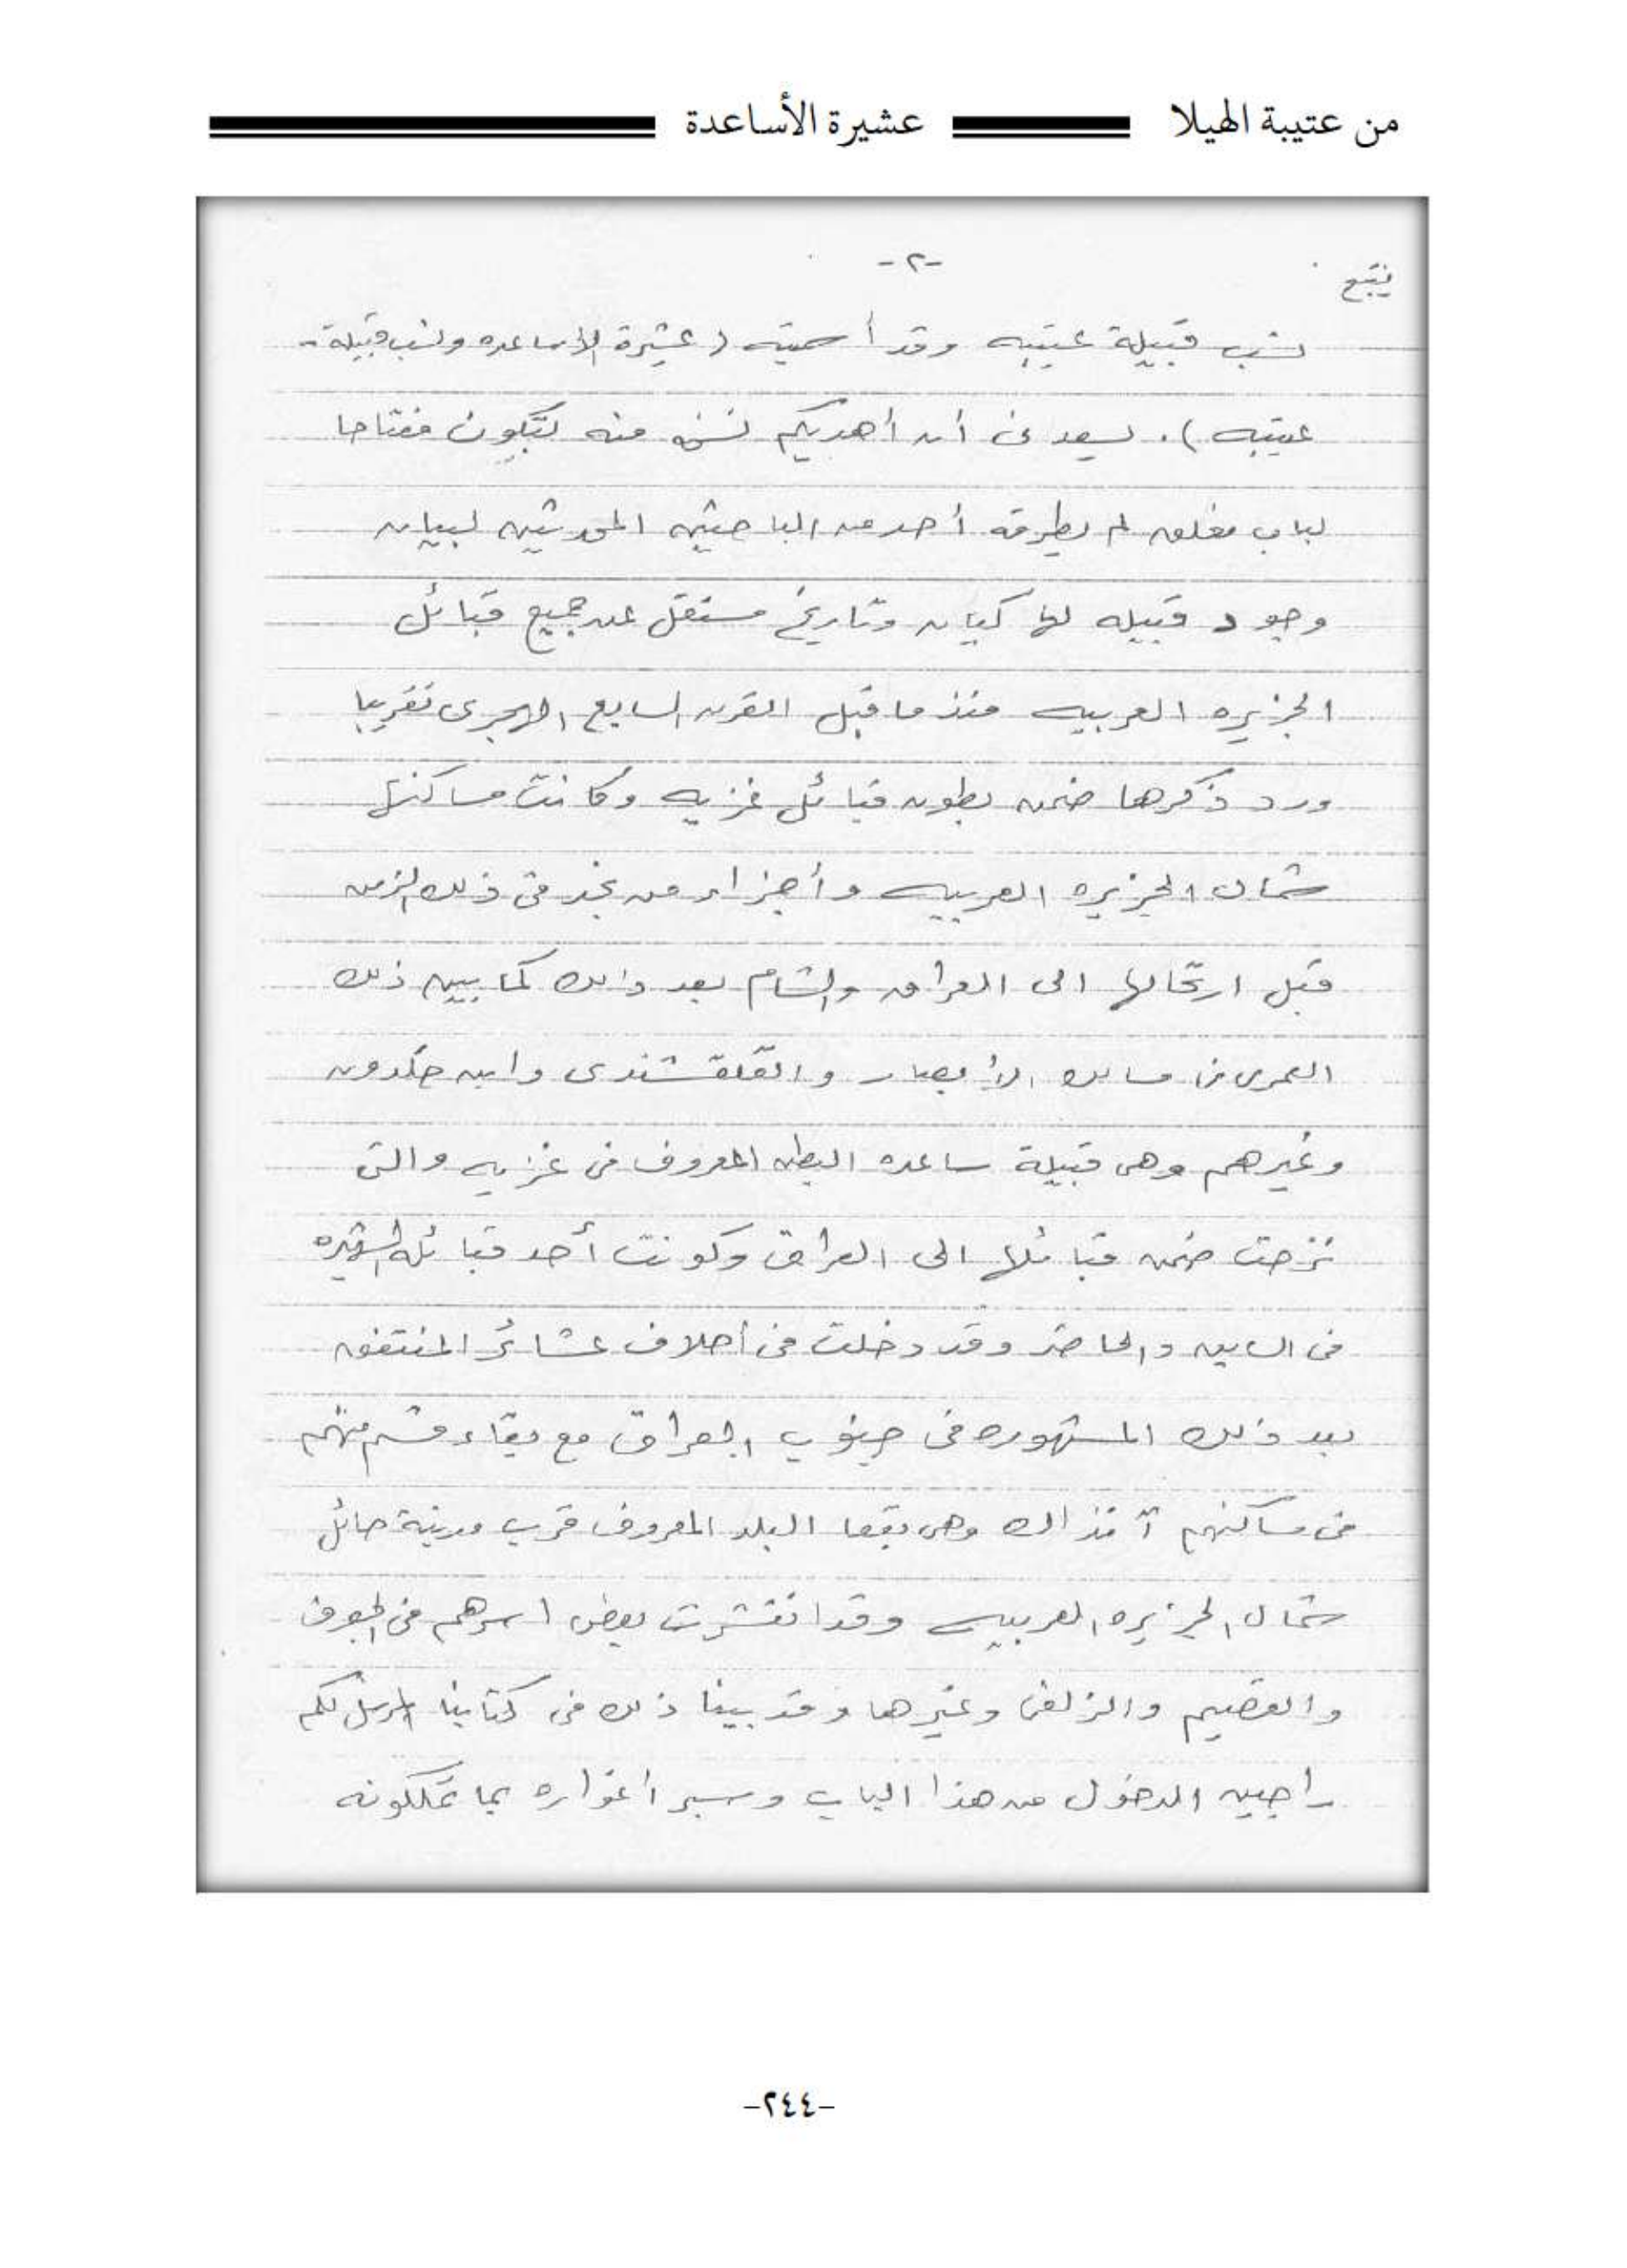 من عتيبة الهيلا عشيرة الأساعدة
-٢-
يتبع
نسب قبيلة عتيبه وقد أسميته (عشيرة الأساعده ونسب قبيلة
عتيبه). يسعدنى أن أهديكم نسخه منه لتكون مفتاحا
لباب مغلق لم يطرقه أحد من الباحثين المحدثين لبيان
وجود قبيله لها كيان وتاريخ مستقل عن جميع قبائل
الجزيره العربيه منذ ما قبل القرن السابع الهجرى تقريبا
ورد ذكرها ضمن بطون قبائل غزيه وكانت مساكنها
شمال الجزيره العربيه وأجزاء من نجد فى ذلك الزمن
قبل ارتحالها الى العراق والشام بعد ذلك كما بين ذلك
العمرى فى مسالك الأبصار والقلقشندى وابن خلدون
وغيرهم وهى قبيلة ساعده البطن المعروف فى غزيه والتى
نزحت ضمن قبائلها الى العراق وكونت أحد قبائله الشهيره
فى السابق والحاضر وقد دخلت فى أحلاف عشائر المنتفق
بعد ذلك المشهوره فى جنوب العراق مع بقاء قسم منهم
فى مساكنهم آنذاك وهى بقعا البلد المعروف قرب مدينة حائل
شمال الجزيره العربيه وقد انتشرت بعض اسرهم فى الجوف
والقصيم والزلفى وغيرها وقد بينا ذلك فى كتابنا المرسل لكم
راجين الدخول من هذا الباب وسبر أغواره بما تملكونه
-٢٤٤-